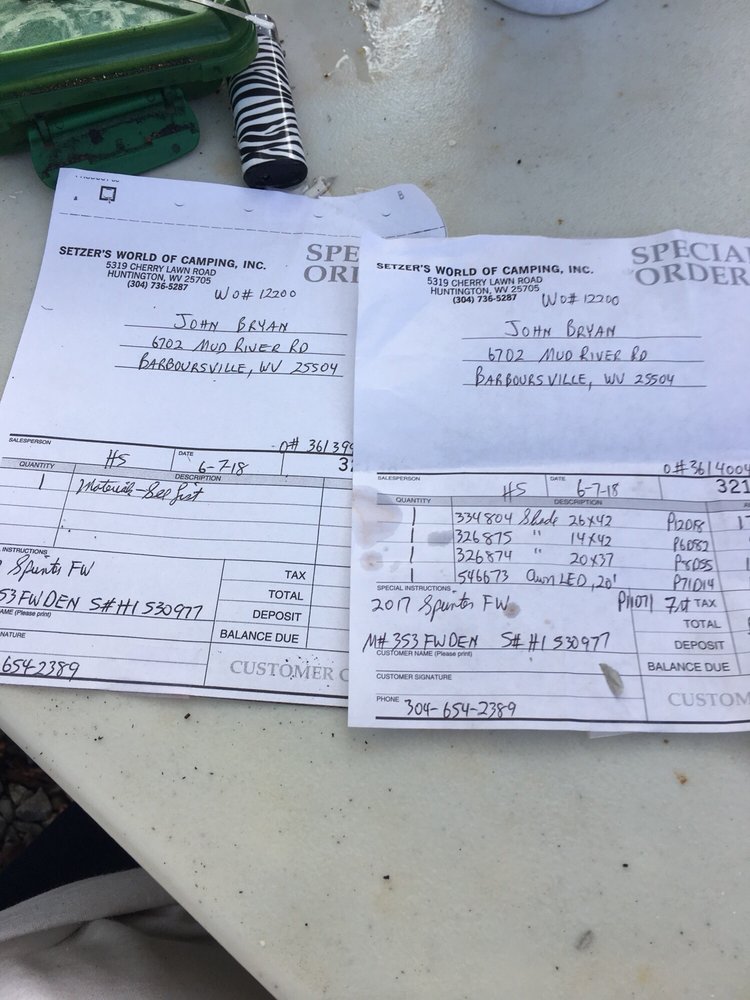 A
B
SETZER'S WORLD OF CAMPING, INC.
5319 CHERRY LAWN ROAD
HUNTINGTON, WV 25705
(304) 736-5287
WO# 12200
JOHN BRYAN
6702 MUD RIVER RD
BARBOURSVILLE, WV 25504
O# 361399
SALESPERSON
HS
DATE
6-7-18
QUANTITY
DESCRIPTION
1 Material - See List
INSTRUCTIONS
FW
53FWDEN S# H1530977
AME (Please print)
NATURE
654-2389
TAX
TOTAL
DEPOSIT
BALANCE DUE
CUSTOMER C
SETZER'S WORLD OF CAMPING, INC.
5319 CHERRY LAWN ROAD
HUNTINGTON, WV 25705
(304) 736-5287
SPECIA
ORDER
WO# 12200
JOHN BRYAN
6702 MUD RIVER RD
BARBOURSVILLE, WV 25504
O# 3614004
SALESPERSON
HS
DATE
6-7-18
321
QUANTITY
DESCRIPTION
1 334804 Shade 26x42
1 326875 " 14x42 P6D82
1 326874 " 20x37
1 546673 LED, 20' P71D14
SPECIAL INSTRUCTIONS
2017 FW
TAX
TOTAL
M# 353FWDEN S# H1530977
DEPOSIT
CUSTOMER NAME (Please print)
BALANCE DUE
CUSTOMER SIGNATURE
CUSTOM
PHONE 304-654-2389